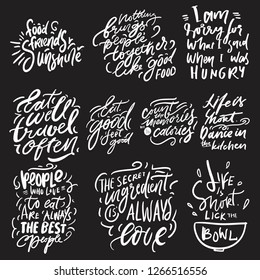 food
friends &
Sunshine
Nothing
brings
people
together
like good
FOOD
I am
Sorry for
What I said
when I was
HUNGRY
Eat
well
travel
often
Eat
good
feel
good
Count
the
memories
not
calories
Life is
short
Dance in
the kitchen
PEOPLE
WHO LOVE
to eat
ARE ALWAYS
THE BEST
people
THE SECRET
ingredient
IS
ALWAYS
love
Life
is
Short
LICK THE
BOWL
shutterstock.com · 1266516556